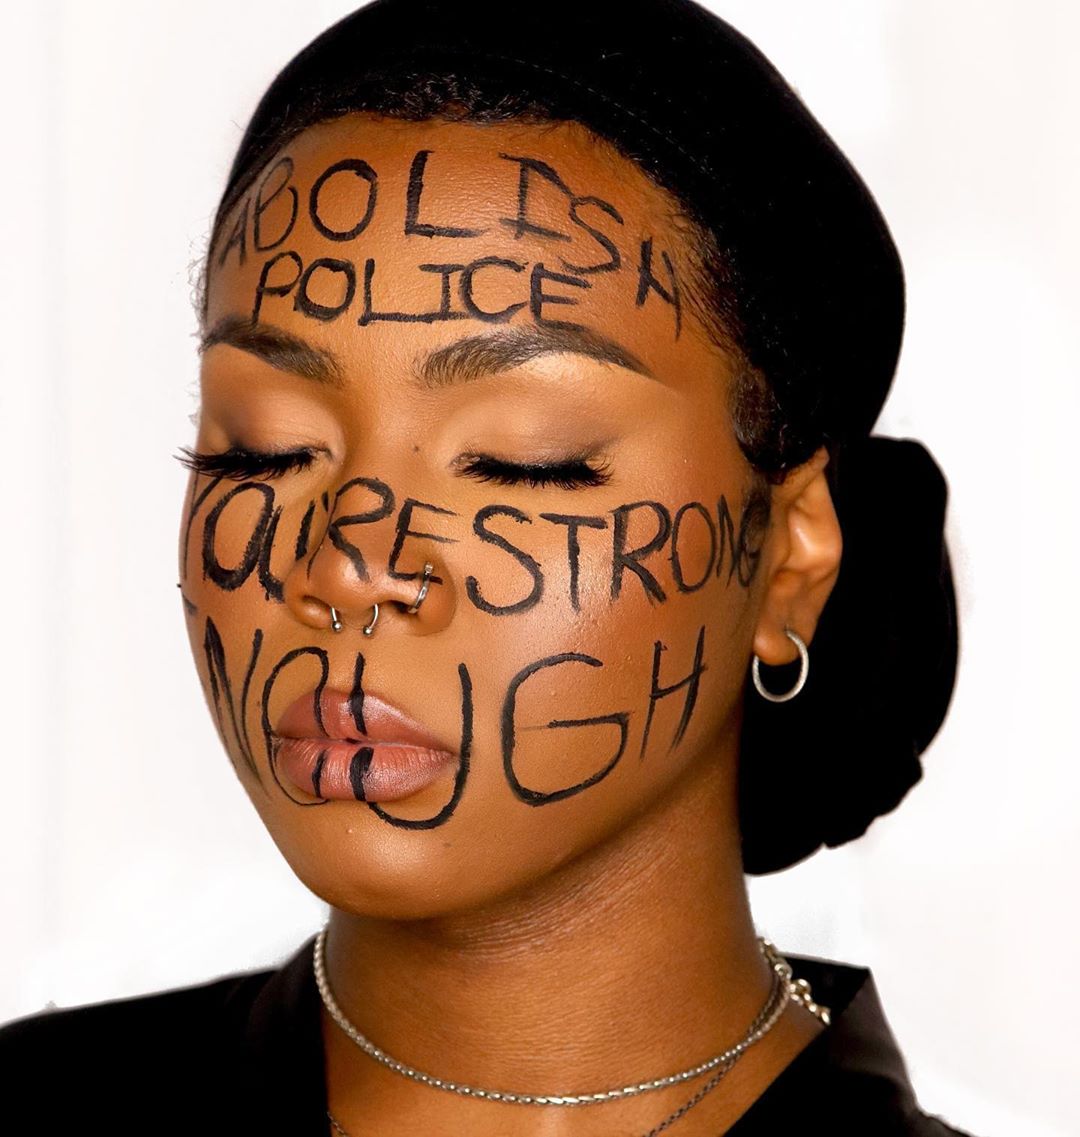 ABOLISH
POLICE
YOU'RE STRONG
ENOUGH